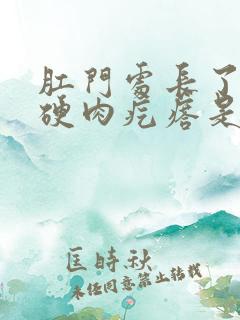 肛門處長了
硬肉疙瘩是
匡時秋
未經同意禁止轉載